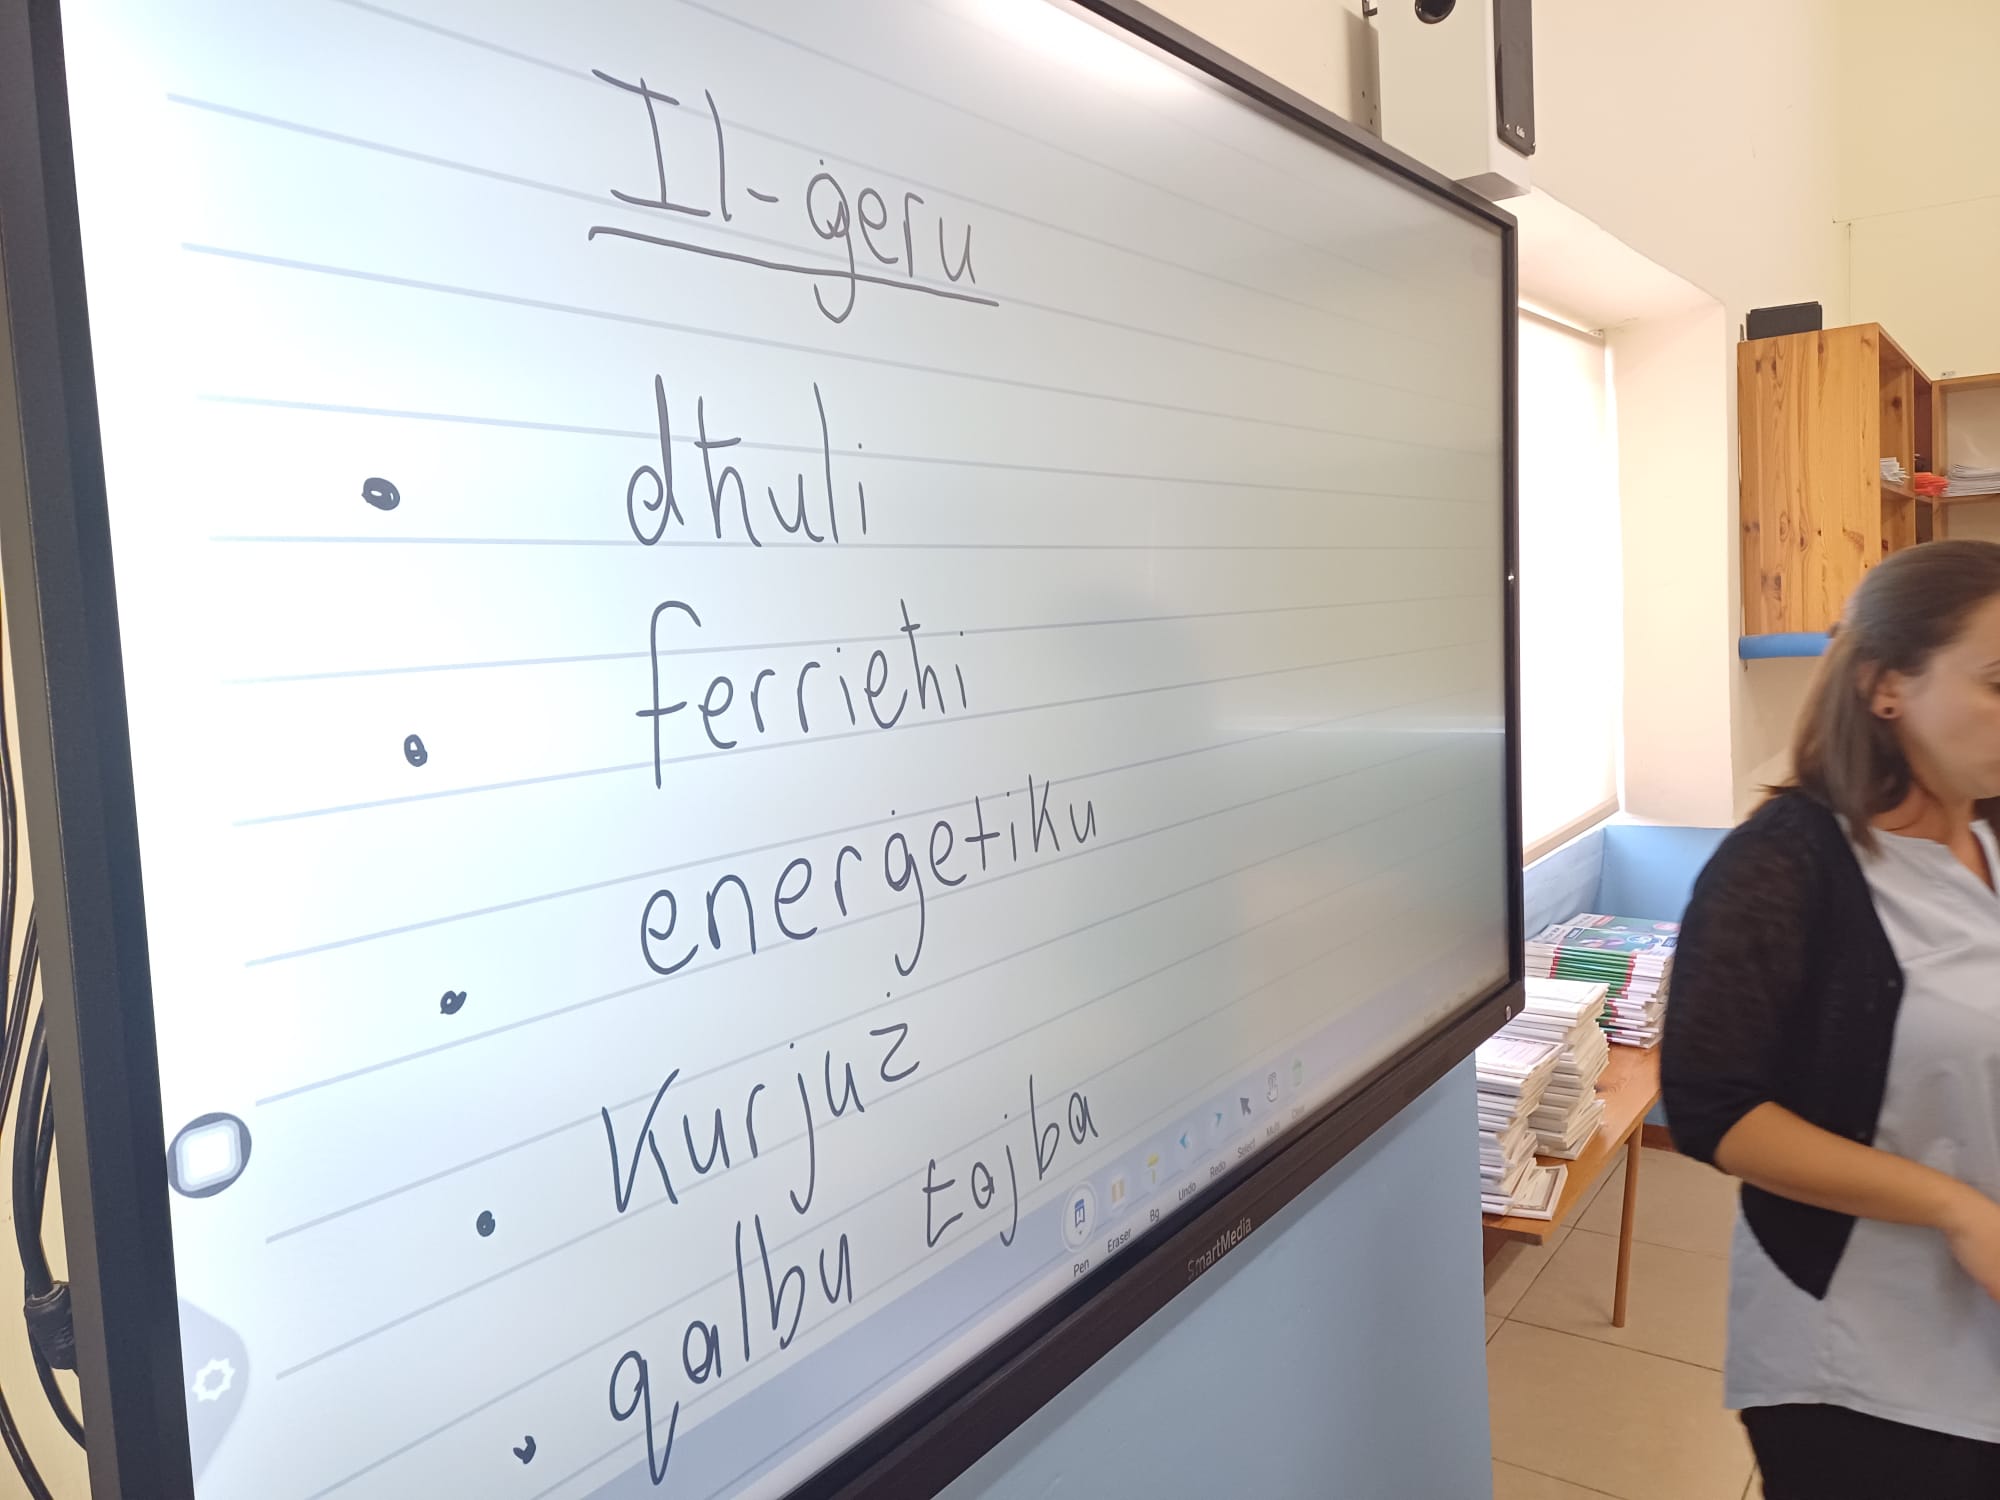 Il-ġeru
• dħuli
• ferrieħi
• enerġetiku
• Kurjuż
• qalbu tajba
Pen
Eraser
Bg
Undo
Redo
Select
Multi
Clear
SmartMedia